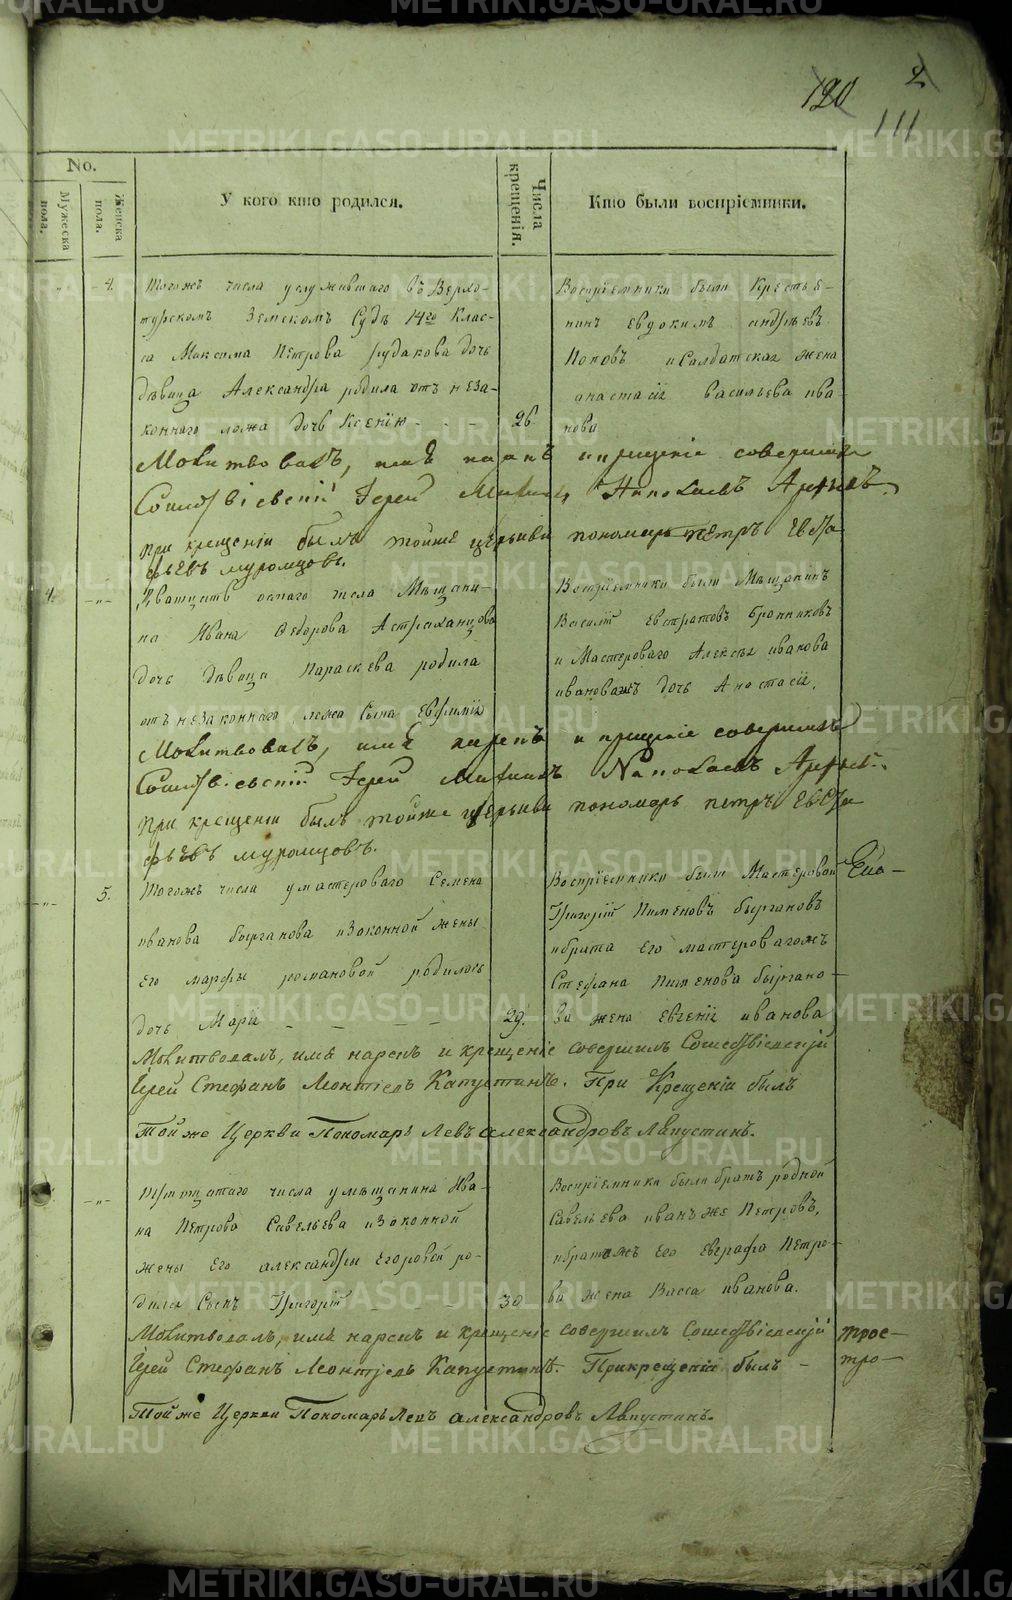 120 2
111
No.
Мужеска пола.
Женска пола.
У кого кто родился.
Числа крещенія.
Кто были воспріемники.
4.
Тогожъ числа услужившаго въ Верхо-
турскомъ Земскомъ Судѣ 14го Клас-
са Максима Петрова Рудакова дочь
дѣвица Александра родила отъ неза-
коннаго ложа дочь Ксенію
26
Воспріемники были Кресть е-
нинъ евдокимъ андрѣевъ
Поповъ и Салдатская жена
анастасія васильева ива-
нова
Молитвовалъ, имя нарекъ и крещеніе совершилъ
Сошествіевскій Іерей Николаевъ
при крещеніи былъ тойже церькви пономарь петръ евста
фьевъ муромцовъ.
4.
Дватцеть осмаго числа Мѣщани-
на Ивана Федорова Астраханцова
дочь дѣвица параскева родила
отъ незаконнаго ложа сына евфимія
Воспріемники были Мѣщанинъ
Василій евстратовъ бронниковъ
и Мастероваго Алексѣя иванова
дочь Анастасія.
Молитвовалъ, имя нарекъ и крещеніе совершилъ
Сошествіевскій Іерей Николаевъ
При крещеніи былъ тойже церькви пономарь петръ евста
фьевъ муромцовъ.
5.
Тогожъ числа умастероваго Семена
иванова бырганова изаконной жены
его марфы романовой родилась
дочь Марія
29.
Воспріемники были Мастеровой
Григорій Пименовъ быргановъ
ибрата его мастеровагожъ
Стефана пименова быргано-
ва жена евгенія иванова
Молитвовалъ, имя нарекъ и крещеніе совершилъ Сошествіевскій
Іерей Стефанъ Леонтіевъ Капустинъ. При Крещеніи былъ
Тойже Церкви Пономарь Левъ александровъ Лапустинъ.
Тритцатаго числа умѣщанина Ива-
на Петрова Савельева изаконной
жены его александры егоровой ро-
дился Сынъ Григорій
30
Воспріемники были братъ родной
Савельева иванъже Петровъ,
ибратажъ его евграфа Петро-
ва жена Васса иванова.
Молитвовалъ, имя нарекъ и крещеніе совершилъ Сошествіевскій
Іерей Стефанъ Леонтіевъ Капустинъ. Прикрещеніи былъ
Тойже Церкви Пономарь Левъ александровъ Лапустинъ.
трое-
тро-
METRIKI.GASO-URAL.RU